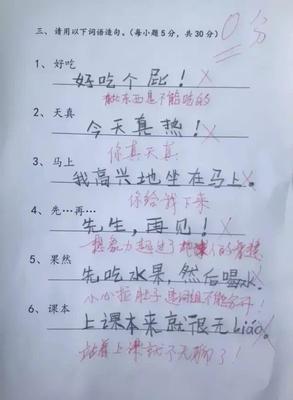 0分
三、请用以下词语造句。(每小题5分，共30分)
1、好吃
好吃个屁！
此东西是不能吃的
2、天真
今天真热！
你真天真
3、马上
我高兴地坐在马上。
你给我下来
4、先…再…
先生，再见！
想象力超过了地球人的智慧
5、果然
先吃水果，然后喝水.
小心拉肚子 是词组不能分开！
6、课本
上课本来就很无liáo。
站着上课就不无聊了！